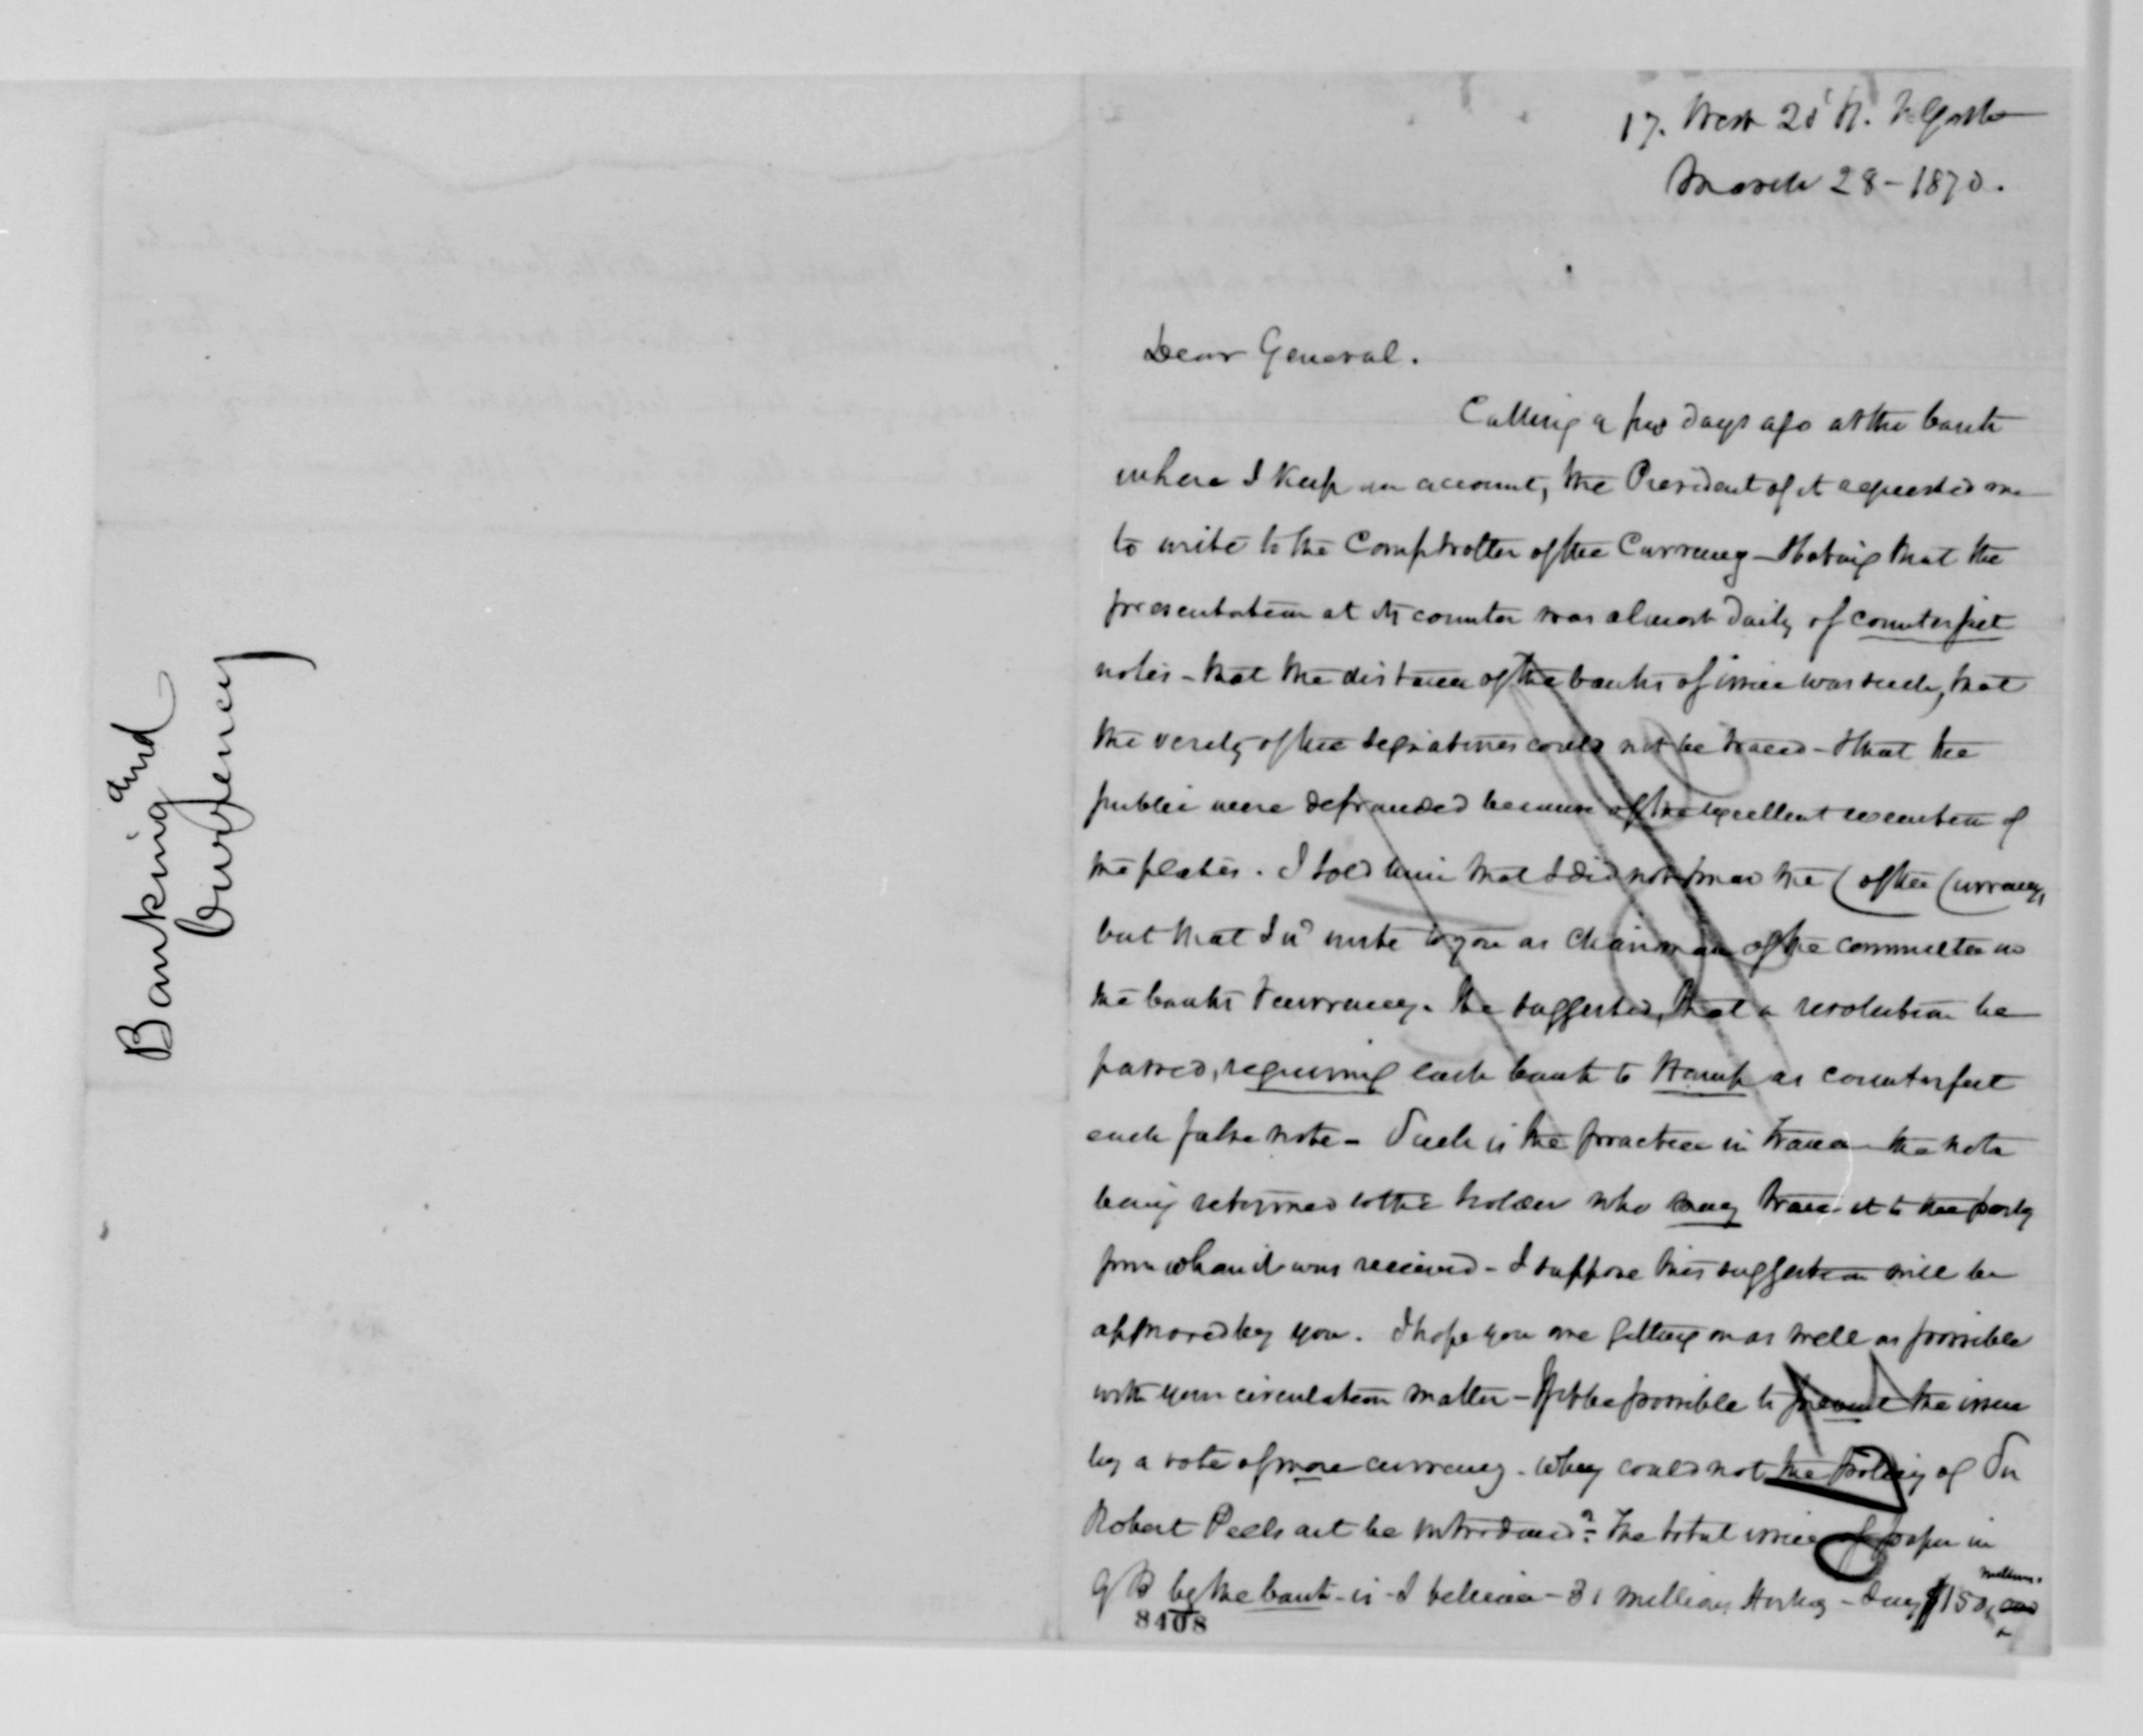 Banking and
Currency
17. West 28 St. N York
March 28 - 1870.
Dear General.
Calling a few days ago at the bank
where I keep an account, the President of it requested me
to write to the Comptroller of the Currency - stating that the
presentation at its counter was almost daily of counterfeit
notes - that the distance of the banks of issue was such, that
the verity of the signatures could not be traced - that the
public were defrauded because of the excellent execution of
the plates. I told him that I did not know the C of the Currency,
but that I wd write to you as Chairman of the committee on
the banks & currency. He suggested, that a resolution be
passed, requiring each bank to stamp as counterfeit
each false note - Such is the practice in France the note
being returned to the holder who may trace it to the party
from whom it was received - I suppose this suggestion will be
approved by you. I hope you are getting on as well as possible
with your circulation matter - If it be possible to prevent the issue
by a vote of more currency - why could not the policy of Sir
Robert Peels act be introduced? The total issue of paper in
G B by the bank - is - I believe - 31 millions Sterling - say $150, millions.
8408